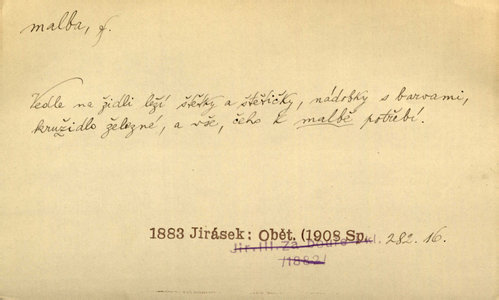 malba, f.
Vedle na židli leží štětky a štětičky, nádobky s barvami,
kružidlo železné, a vše, čeho k malbě potřebí.
1883 Jirásek: Obět. (1908 Sp.
Jir.III.Za Dourd Pkl. 282. 16.
/1882/